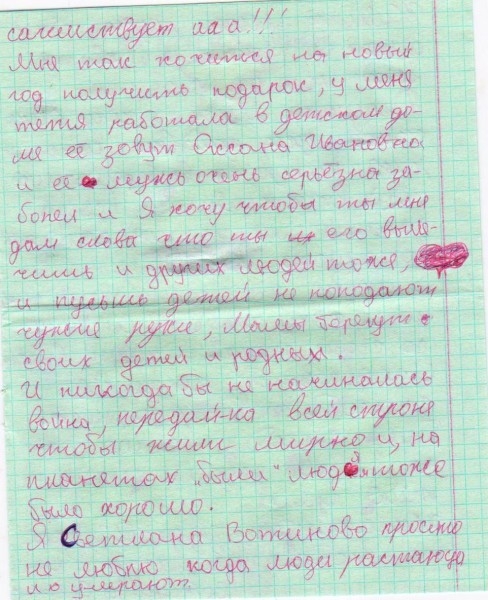 сагиствует ааа!!!
Мне так хочится на новый
год получить подарок, у меня
тётя работала в детском до-
ме её зовут Оксана Ивановна
и её мужь очень серьёзна за-
болел и Я хочу чтобы ты мне
дам слова что ты его выле-
чишь и других людей тоже,
и пусьть детей не пападают
чужие руки, Мамы берегут
своих детей и родных.
И никогда бы не начиналась
война, передай-ка всей строне
чтобы жили мирно и, на
планетах "были" людя тоже
было хорошо.
Я Светлана Вотиново просто
не люблю когда люди растаюдся
и умерают.